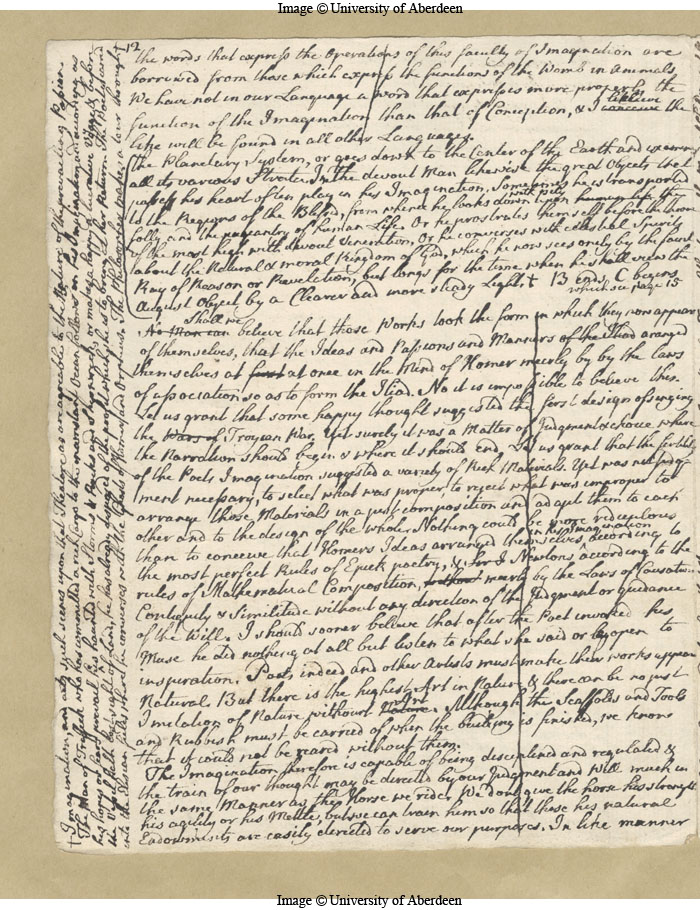 Image © University of Aberdeen
12
the words that express the Operations of this faculty of Imagination are
borrowed from those which express the functions of the Womb in Animals
We have not in our Language a word that expresses more properly the
function of the Imagination than that of Conception, & I conceive the
believe
like will be found in all other Languages.
the Planetary System, or goes down to the Center of the Earth and
all its various Strata. In the devout Man likewise the great Objects that
possess his heart often play in his Imagination. Sometimes he is transported
to the Regions of the Blessed, from whence he looks down with pity upon human life the
folly and the pageantry of human Life. Or he prostrates himself before the throne
of the most high with devout veneration, Or he converses with celestial Spirits
about the Natural & moral Kingdom of God, which he now sees only by the faint
Ray of Reason or Revelation, but longs for the time when he shall view the
August Object by a Clearer and more steady Light. ‡ 13 ends, C begins
which see page 15
Shall we
No Man can believe that those Works took the form in which they now appear
of themselves, that the Ideas and Passions and Manners of the Iliad aranged
themselves at first at once in the Mind of Homer meerly by by the laws
of association so as to form the Iliad. No it is impossible to believe this.
Let us grant that some happy thought suggested the first design of singing
the Wars of Troyian War, Yet surely it was a Matter of Judgment & choice where
the Narration should begin & where it should end. Let us grant that the fertility
of the Poets Imagination suggested a variety of Rich Materials. Yet was not Judge
ment necessary, to select what was proper, to reject what was improper to
arrange those Materials in a just composition and adapt them to each
other and to the design of the whole. Nothing could be more rediculous
than to conceive that Homers Ideas arranged themselves, according to
in his Imagination
the most perfect Rules of Epick poetry, & Sir I Newtons according to the
rules of Mathematical Composition, without meerly by the Laws of Causation
Contiguity & Similitude without any direction of the Judgment or guidance
of the Will. I should sooner believe that after the Poet invoked his
Muse he did nothing at all but listen to what she said or lay open to
inspiration. Poets indeed and other Artists must make their works appear
Natural. But there is the highest Art in Nature & there can be no just
Imitation of Nature without Nature Art. Although the Scaffolds and Tools
and Rubbish must be carried of when the building is finished, we know
that it could not be reared without them.
The Imagination therefore is capable of being disciplined and regulated &
the train of our thought may be directed by our Judgment and Will much in
the same Manner as the Horse we ride. We do not give the horse his strength
his agility or his Mettle, but we can train him so that those his natural
Endowments are easily directed to serve our purposes. In like manner
‡ Imagination and acts such scenes upon that Theatre as are agreeable to the Nature of the prevailing Passion.
The Man of Traffick who has committed a rich Cargo to the inconstant Ocean follows in his Imagination and according as
his hopes or fears prevail he is haunted with Storms & Rocks and Shipwreck; or makes a happy & lucrative Voyage & before
the Vessel hath lost sight of land, he has already disposed of the profit which she is to bring at her Return. The Poet is carried
into the Elysian fields where he converses with the Ghosts of Homer and Orpheus. The Philosopher makes a tour through
Image © University of Aberdeen